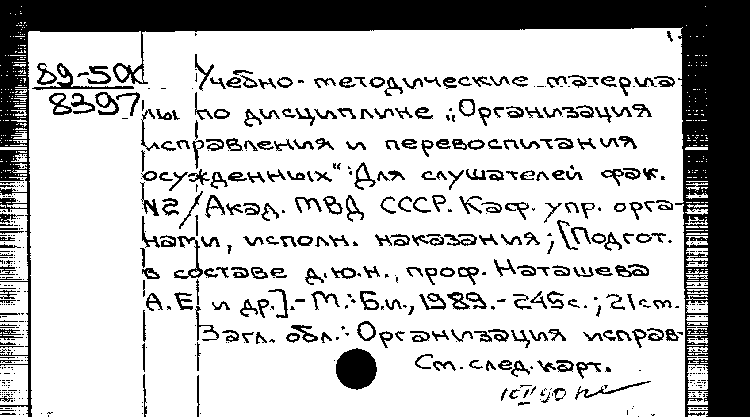 89-5ОК
8397
Учебно-методические материа-
лы по дисциплине „Организация
исправления и перевоспитания
осужденных“: Для слушателей фак.
N2/Акад. МВД СССР. Каф. упр. орга-
нами, исполн. наказания; [Подгот.
в составе д.ю.н., проф. Наташева
А.Е. и др.].-М.: Б.и., 1989.-245с.; 21см.
Загл. обл.: Организация исправ-
См. след. карт.